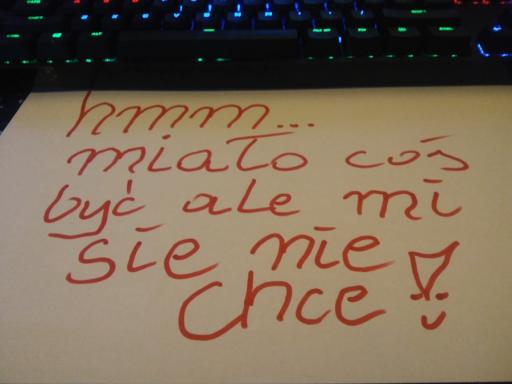 hmm...
miało cós
być ale mi
sie nie
chce!